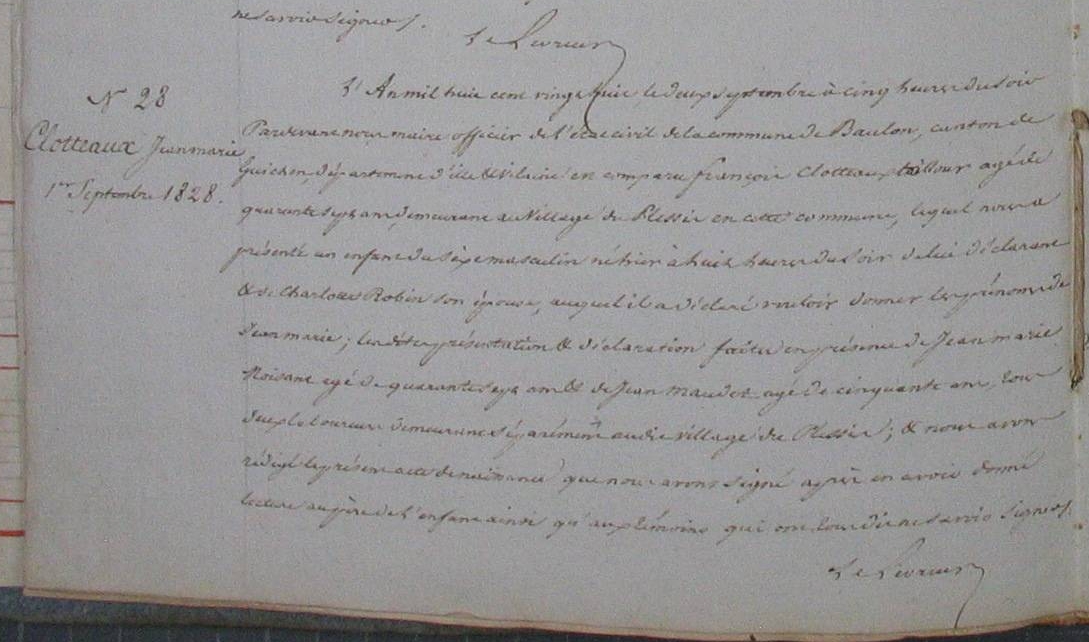 ne savoir signer /.
Le Levreur
N 28
Clotteaux Jeanmarie
1er Septembre 1828.
L'An mil huit cent vingt huit, le deux septembre à cinq heures du soir
Pardevant nous maire officier de l'état civil de la commune de Baulon, canton de
Guichen, département d'ille & Vilaine est comparu françois Clotteaux tailleur agé de
quarante sept ans, demeurant au Village du Plessis en cette commune, lequel nous a
présenté un enfant du sexe masculin né hier à huit heures du soir de lui déclarant
& de Charlotte Robin son épouse, auquel il a déclaré vouloir donner les prénoms de
Jean marie ; les dites présentation & déclaration faites en présence de Jean marie
Noisant agé de quarante sept ans & de Jean Maudet agé de cinquante ans, tous
deux laboureurs demeurant séparément audit village du Plessis ; & nous avons
rédigé le présent acte de naissance que nous avons signé après en avoir donné
lecture au père de l'enfant ainsi qu'aux témoins qui ont tous dit ne savoir signer /.
Le Levreur